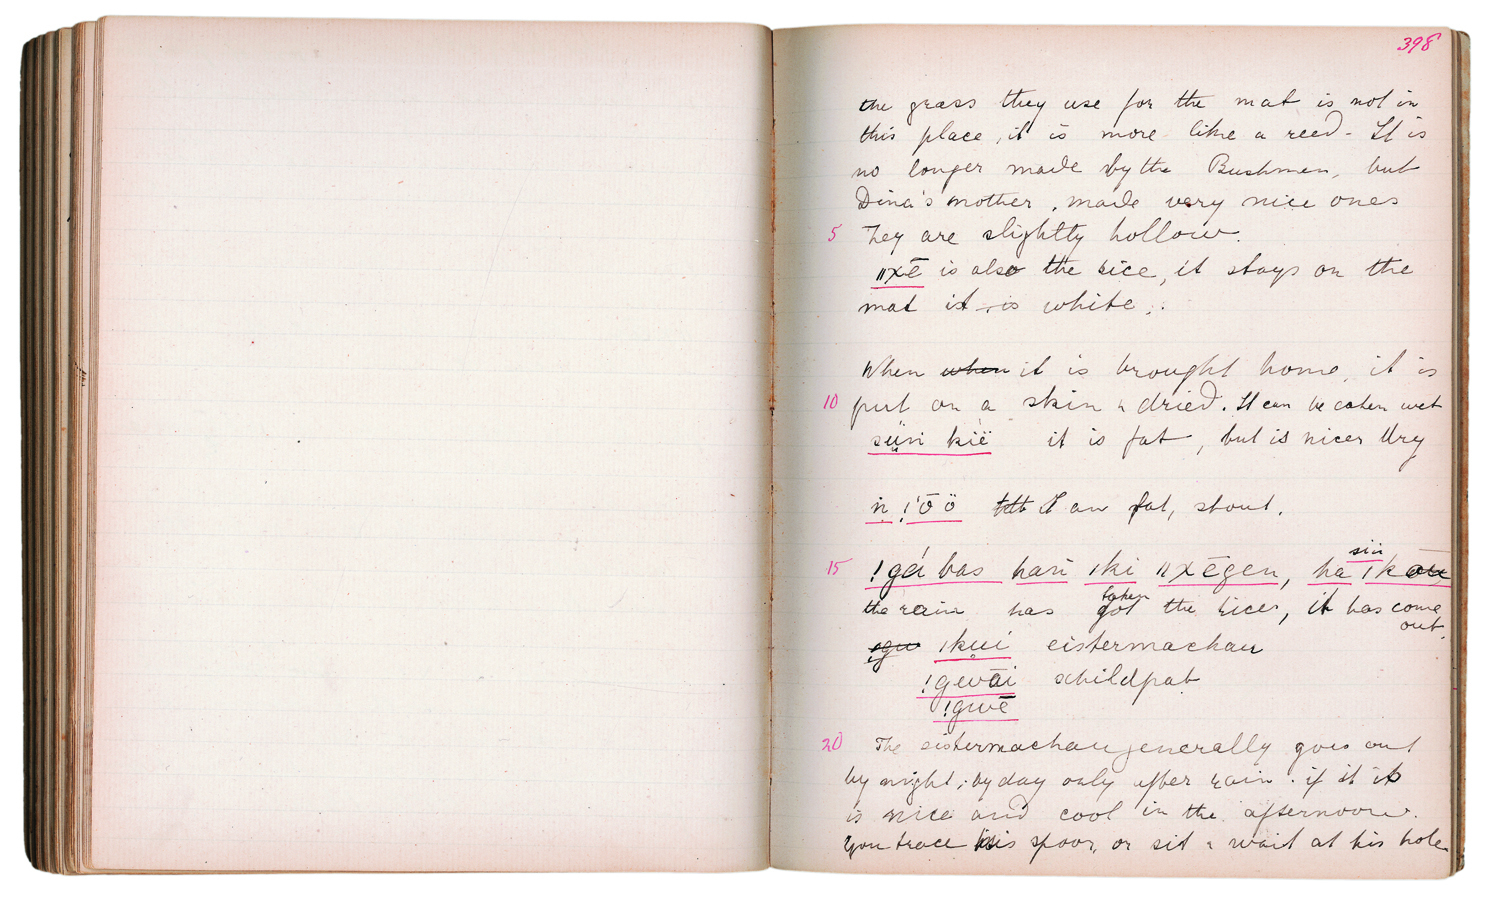 398
the grass they use for the mat is not in
this place, it is more like a reed - It is
no longer made by the Bushmen, but
Dina's mother, made very nice ones
5 They are slightly hollow.
ǁχē is also the rice, it stays on the
mat it is white.
When when it is brought home, it is
10 put on a skin & dried. It can be eaten wet
sụ̈ni kïë it is fat, but is nicer dry
ṅ !'ō ö I am fat, stout.
siï
15 !gá bas haṅ ǀki ǁχēgen, ha ǀkāu
taken
the rain has got the rices, it has come
out.
ǀkụi eistermachau
!gewāi schildpat
!gwē
20 The eistermachau generally goes out
by night; by day only after rain. if it is
is nice and cool in the afternoon.
You trace his spoor, or sit & wait at his hole